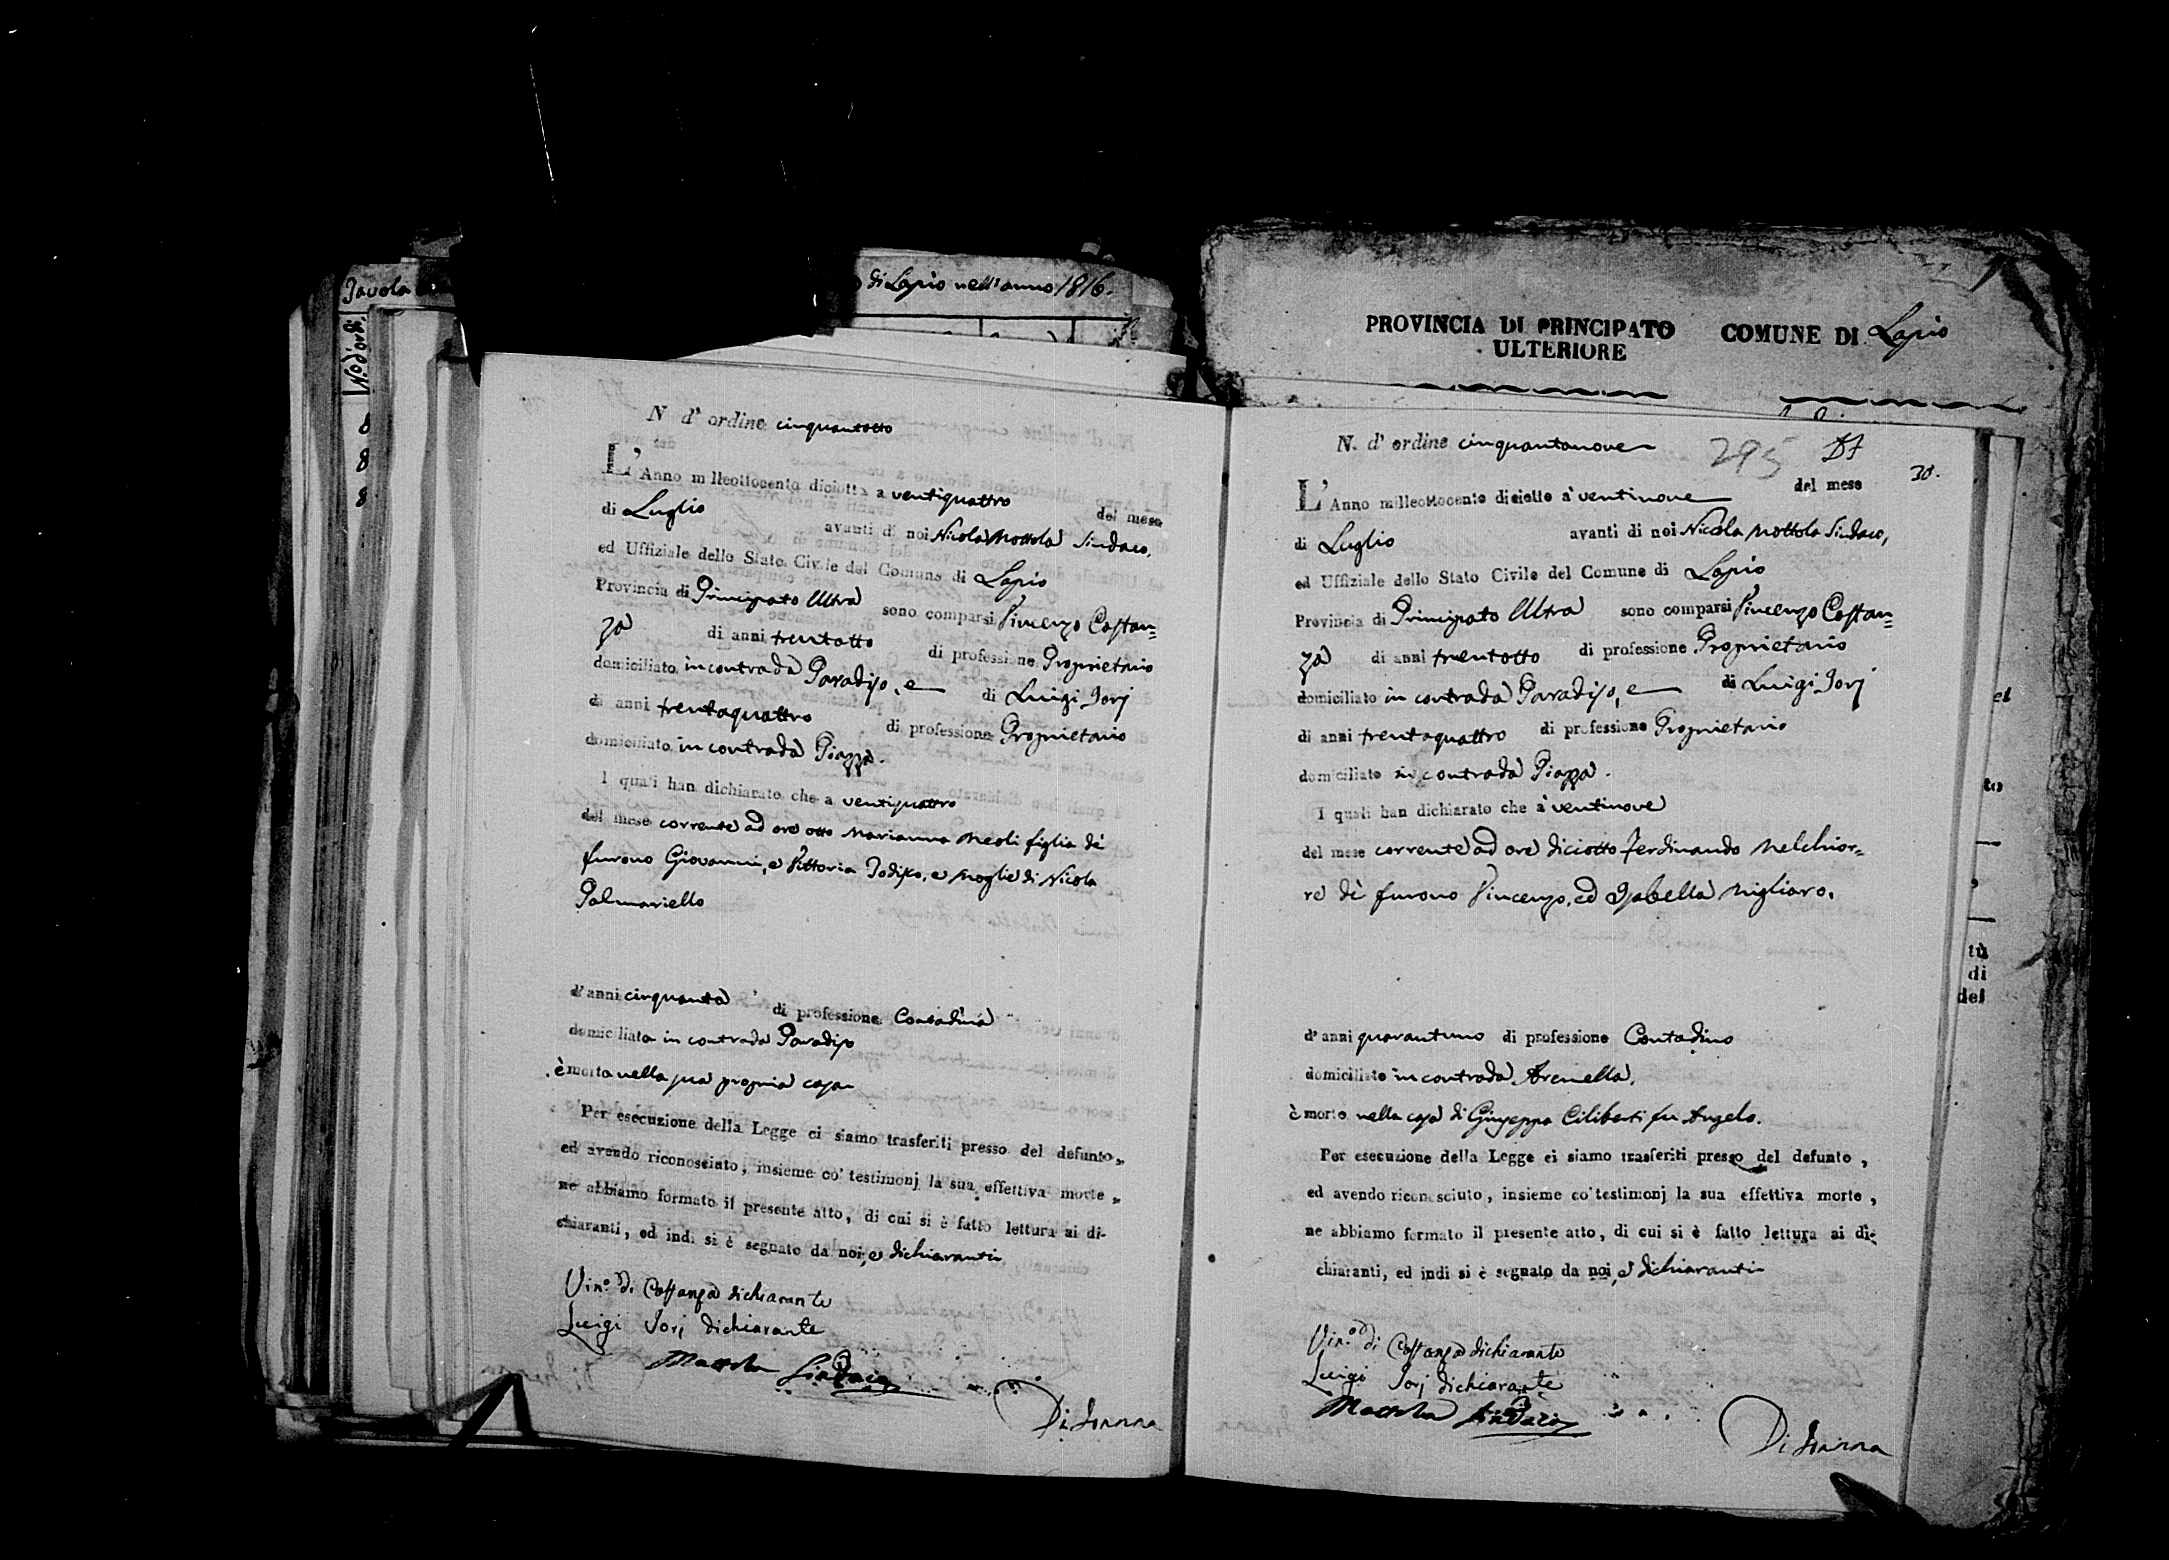 Tavola
di Lapio nell'anno 1816.
N.o d'ordi.
8
8
8
N d' ordine cinquantotto
L'Anno milleottocento diciotto a ventiquattro del mese
di Luglio avanti di noi Nicola Mottola Sindaco,
ed Uffiziale dello Stato Civile del Comune di Lapio
Provincia di Principato Ultra sono comparsi Vincenzo Costan=
za di anni trentotto di professione Proprietario
domiciliato in contrada Paradiso, e di Luigi Iorj
di anni trentaquattro di professione Proprietario
domiciliato in contrada Piazza.
I quali han dichiarato che a ventiquattro
del mese corrente ad ore otto Marianna Meoli figlia de'
furono Giovanni, e Vittoria Todisco, e moglie di Nicola
Palmariello
d'anni cinquanta di professione Contadina
domiciliata in contrada Paradiso
è morta nella sua propria casa
Per esecuzione della Legge ci siamo trasferiti presso del defunto,
ed avendo riconosciuto, insieme co' testimonj la sua effettiva morte,
ne abbiamo formato il presente atto, di cui si è fatto lettura ai di-
chiaranti, ed indi si è segnato da noi, e dichiaranti
Vin.o di Costanza dichiarante
Luigi Iorj dichiarante
Mottola Sindaco
PROVINCIA DI PRINCIPATO COMUNE DI Lapio
ULTERIORE
N. d' ordine cinquantanove 295
30.
L'Anno milleottocento diciotto a' ventinove del mese
di Luglio avanti di noi Nicola Mottola Sindaco,
ed Uffiziale dello Stato Civile del Comune di Lapio
Provincia di Principato Ultra sono comparsi Vincenzo Costan=
za di anni trentotto di professione Proprietario
domiciliato in contrada Paradiso, e di Luigi Iorj
di anni trentaquattro di professione Proprietario
domiciliato in contrada Piazza.
I quali han dichiarato che a' ventinove
del mese corrente ad ore diciotto Ferdinando Melchior=
re de' furono Vincenzo, ed Isabella Migliaro.
d' anni quarantuno di professione Contadino
domiciliato in contrada Arenella.
è morto nella casa di Giuseppe Ciliberti fu Angelo.
Per esecuzione della Legge ci siamo trasferiti presso del defunto,
ed avendo riconosciuto, insieme co' testimonj la sua effettiva morte,
ne abbiamo formato il presente atto, di cui si è fatto lettura ai di-
chiaranti, ed indi si è segnato da noi, e dichiaranti
Vin.o di Costanza dichiarante
Luigi Iorj dichiarante
Mottola Sindaco
to
tù
di
del